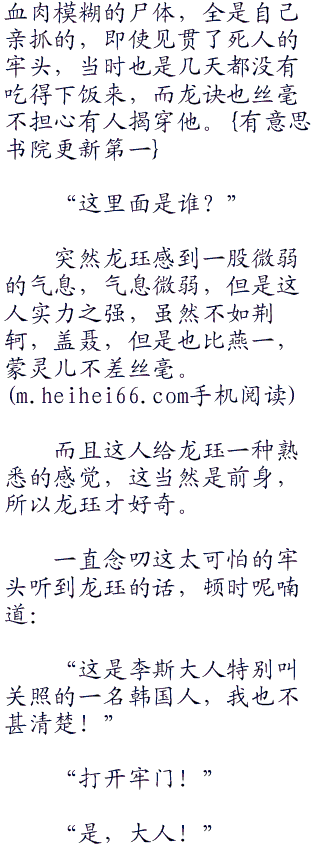 血肉模糊的尸体，全是自己
亲抓的，即使见贯了死人的
牢头，当时也是几天都没有
吃得下饭来，而龙诀也丝毫
不担心有人揭穿他。{有意思
书院更新第一}
“这里面是谁？”
突然龙珏感到一股微弱
的气息，气息微弱，但是这
人实力之强，虽然不如荆
轲，盖聂，但是也比燕一，
蒙灵儿不差丝毫。
(m.heihei66.com手机阅读)
而且这人给龙珏一种熟
悉的感觉，这当然是前身，
所以龙珏才好奇。
一直念叨这太可怕的牢
头听到龙珏的话，顿时呢喃
道：
“这是李斯大人特别叫
关照的一名韩国人，我也不
甚清楚！”
“打开牢门！”
“是，大人！”